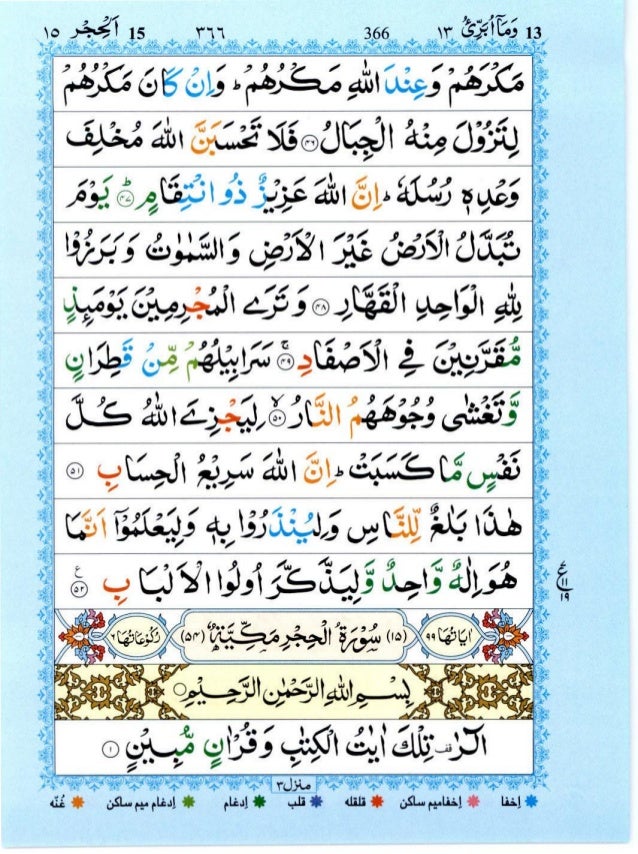 13 وَمَآ اُبَرِّئُ ١٣ 366 ٣٦٦ 15 اَلْحِجْر ١٥
مَكْرَهُمْ وَعِنْدَ اللّٰهِ مَكْرُهُمْ ؕ وَاِنْ كَانَ مَكْرُهُمْ
لِتَزُوْلَ مِنْهُ الْجِبَالُ ﴿۴۶﴾ فَلَا تَحْسَبَنَّ اللّٰهَ مُخْلِفَ
وَعْدِهٖ رُسُلَهٗ ؕ اِنَّ اللّٰهَ عَزِيْزٌ ذُو انْتِقَامٍ ؕ ﴿۴۷﴾ يَوْمَ
تُبَدَّلُ الْاَرْضُ غَيْرَ الْاَرْضِ وَالسَّمٰوٰتُ وَبَرَزُوْا
لِلّٰهِ الْوَاحِدِ الْقَهَّارِ ﴿۴۸﴾ وَتَرَى الْمُجْرِمِيْنَ يَوْمَئِذٍ
مُّقَرَّنِيْنَ فِي الْاَصْفَادِ ۚ ﴿۴۹﴾ سَرَابِيْلُهُمْ مِّنْ قَطِرَانٍ
وَّتَغْشٰى وُجُوْهَهُمُ النَّارُ ۙ ﴿۵۰﴾ لِيَجْزِيَ اللّٰهُ كُلَّ
نَفْسٍ مَّا كَسَبَتْ ؕ اِنَّ اللّٰهَ سَرِيْعُ الْحِسَابِ ﴿۵۱﴾
هٰذَا بَلٰغٌ لِّلنَّاسِ وَلِيُنْذَرُوْا بِهٖ وَلِيَعْلَمُوْٓا اَنَّمَا
هُوَ اِلٰهٌ وَّاحِدٌ وَّلِيَذَّكَّرَ اُولُوا الْاَلْبَابِ ﴿۵۲﴾ ع
ع ١١ ١٩
اٰيَاتُهَا ٩٩ (١٥) سُوْرَةُ الْحِجْرِ مَكِّيَّةٌ (٥٤) رُكُوْعَاتُهَا ٦
بِسْمِ اللّٰهِ الرَّحْمٰنِ الرَّحِيْمِ
الٓرٰ ۫ تِلْكَ اٰيٰتُ الْكِتٰبِ وَقُرْاٰنٍ مُّبِيْنٍ ﴿۱﴾
منزل ٣
اِخفا اِخفامیم ساکن قلقله قلب اِدغام اِدغام میم ساکن غُنّه